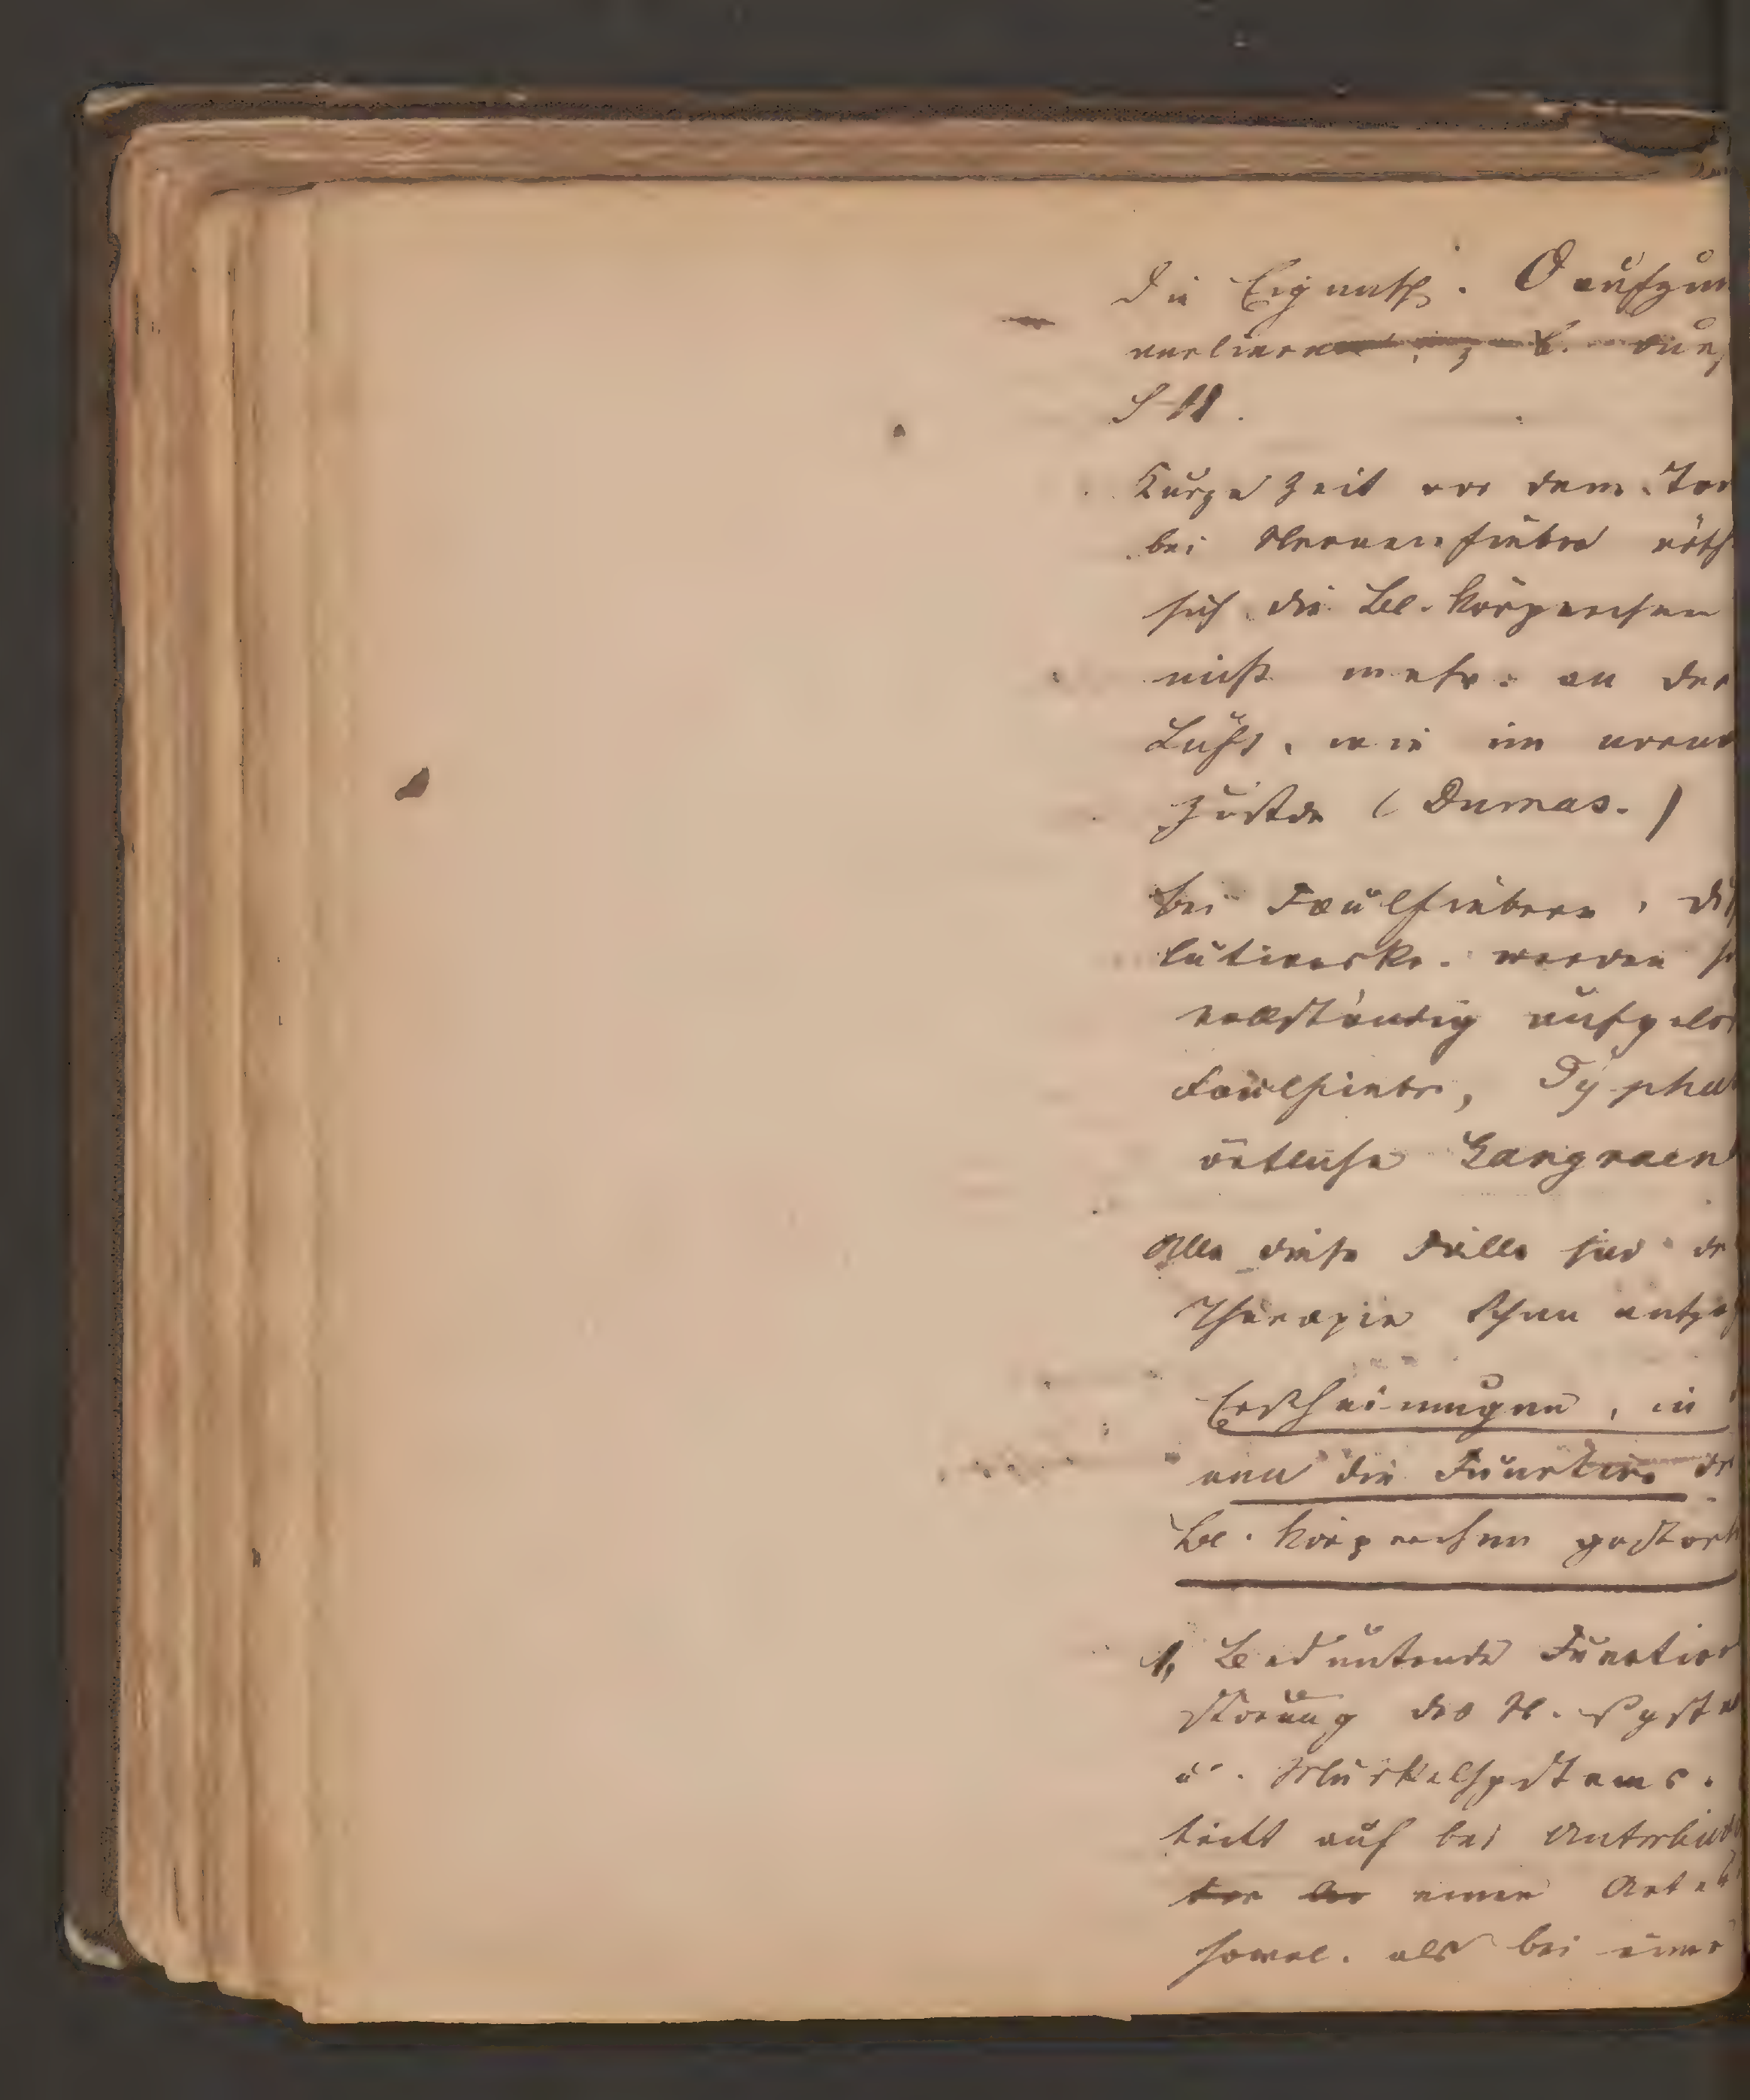 die Eigensch. O aufzun
verlieren, z. B. durch
S H.
Kurze Zeit vor dem Tod
bei Nervenfieber röth
sich die Bl. Körperchen
nicht mehr an der
Luft, wie im norm
Zustde (Dumas.)
bei Faulfiebern, diss
lutionskr. werden s
vollständig aufgelös
Faulfieber, Typhus
örtliche Gangraen
Alle diese Fälle sind d
Therapie schon entge
Erscheinungen, in
nen die Function d
Bl. Körperchen gestört
1, Bedeutende Function
störung des N. System
u. Muskelsystems.
tritt auf bei Unterbind
einer Arter
sowol. als bei einer